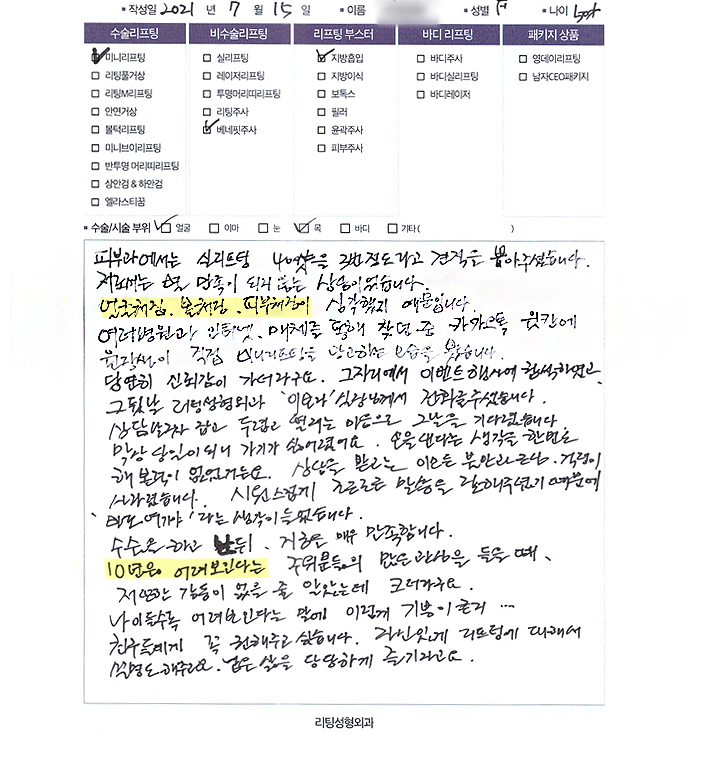 • 작성일 2021 년 7 월 15 일 • 이름 • 성별 F • 나이
수술리프팅 비수술리프팅 리프팅 부스터 바디 리프팅 패키지 상품
미니리프팅 실리프팅 지방흡입 바디주사 영데이리프팅
리팅풀거상 레이저리프팅 지방이식 바디실리프팅 남자CEO패키지
리팅M리프팅 투명머리띠리프팅 보톡스 바디레이저
안면거상 리팅주사 필러
볼턱리프팅 베네핏주사 윤곽주사
미니브이리프팅 피부주사
반투명 머리띠리프팅
상안검 & 하안검
엘라스티꿈
• 수술/시술 부위 얼굴 이마 눈 목 바디 기타( )
피부과에서는 실리프팅 을 3번정도라고 견적을 뽑아주셨습니다.
저에게는 만족이 되지 않는 상담이었습니다.
얼굴처짐, 볼처짐, 피부처짐이 심각했기 때문입니다.
여러병원과 인터넷, 매체를 통해 찾던 중 카카오톡 윗칸에
원장님이 직접 미니리프팅을 광고하는 모습을 봤습니다.
당연히 신뢰감이 가더라구요. 그자리에서 이벤트행사에 참석하였고,
그 뒷날 리팅성형외과 실장님께서 전화를주셨습니다.
상담날자 잡고 두렵고 떨리는 마음으로 그날을 기다렸습니다
막상 당일이 되니 가기가 싫어졌어요. 돈을 낸다는 생각을 한번도
해본적이 없었거든요. 상담을 받고는 모든 불안과 근심, 걱정이
사라졌습니다. 시원스럽게 조근조근 말씀을 잘해주셨기 때문에
'바로 여기야' 라는 생각이 들었습니다.
수술을 하고 난뒤, 저는 매우 만족합니다.
10년은 어려보인다는 주위분들의 많은 관심을 들을 때,
저한테는 감동이 없을 줄 알았는데 크더라구요.
나이들수록 어려보인다는 말에 이렇게 기쁨이 큰지 …
친구들에게 꼭 권해주고 싶습니다. 자신있게 리프팅에 대해서
설명도 해주고요. 남은 삶을 당당하게 즐기라고요.
리팅성형외과